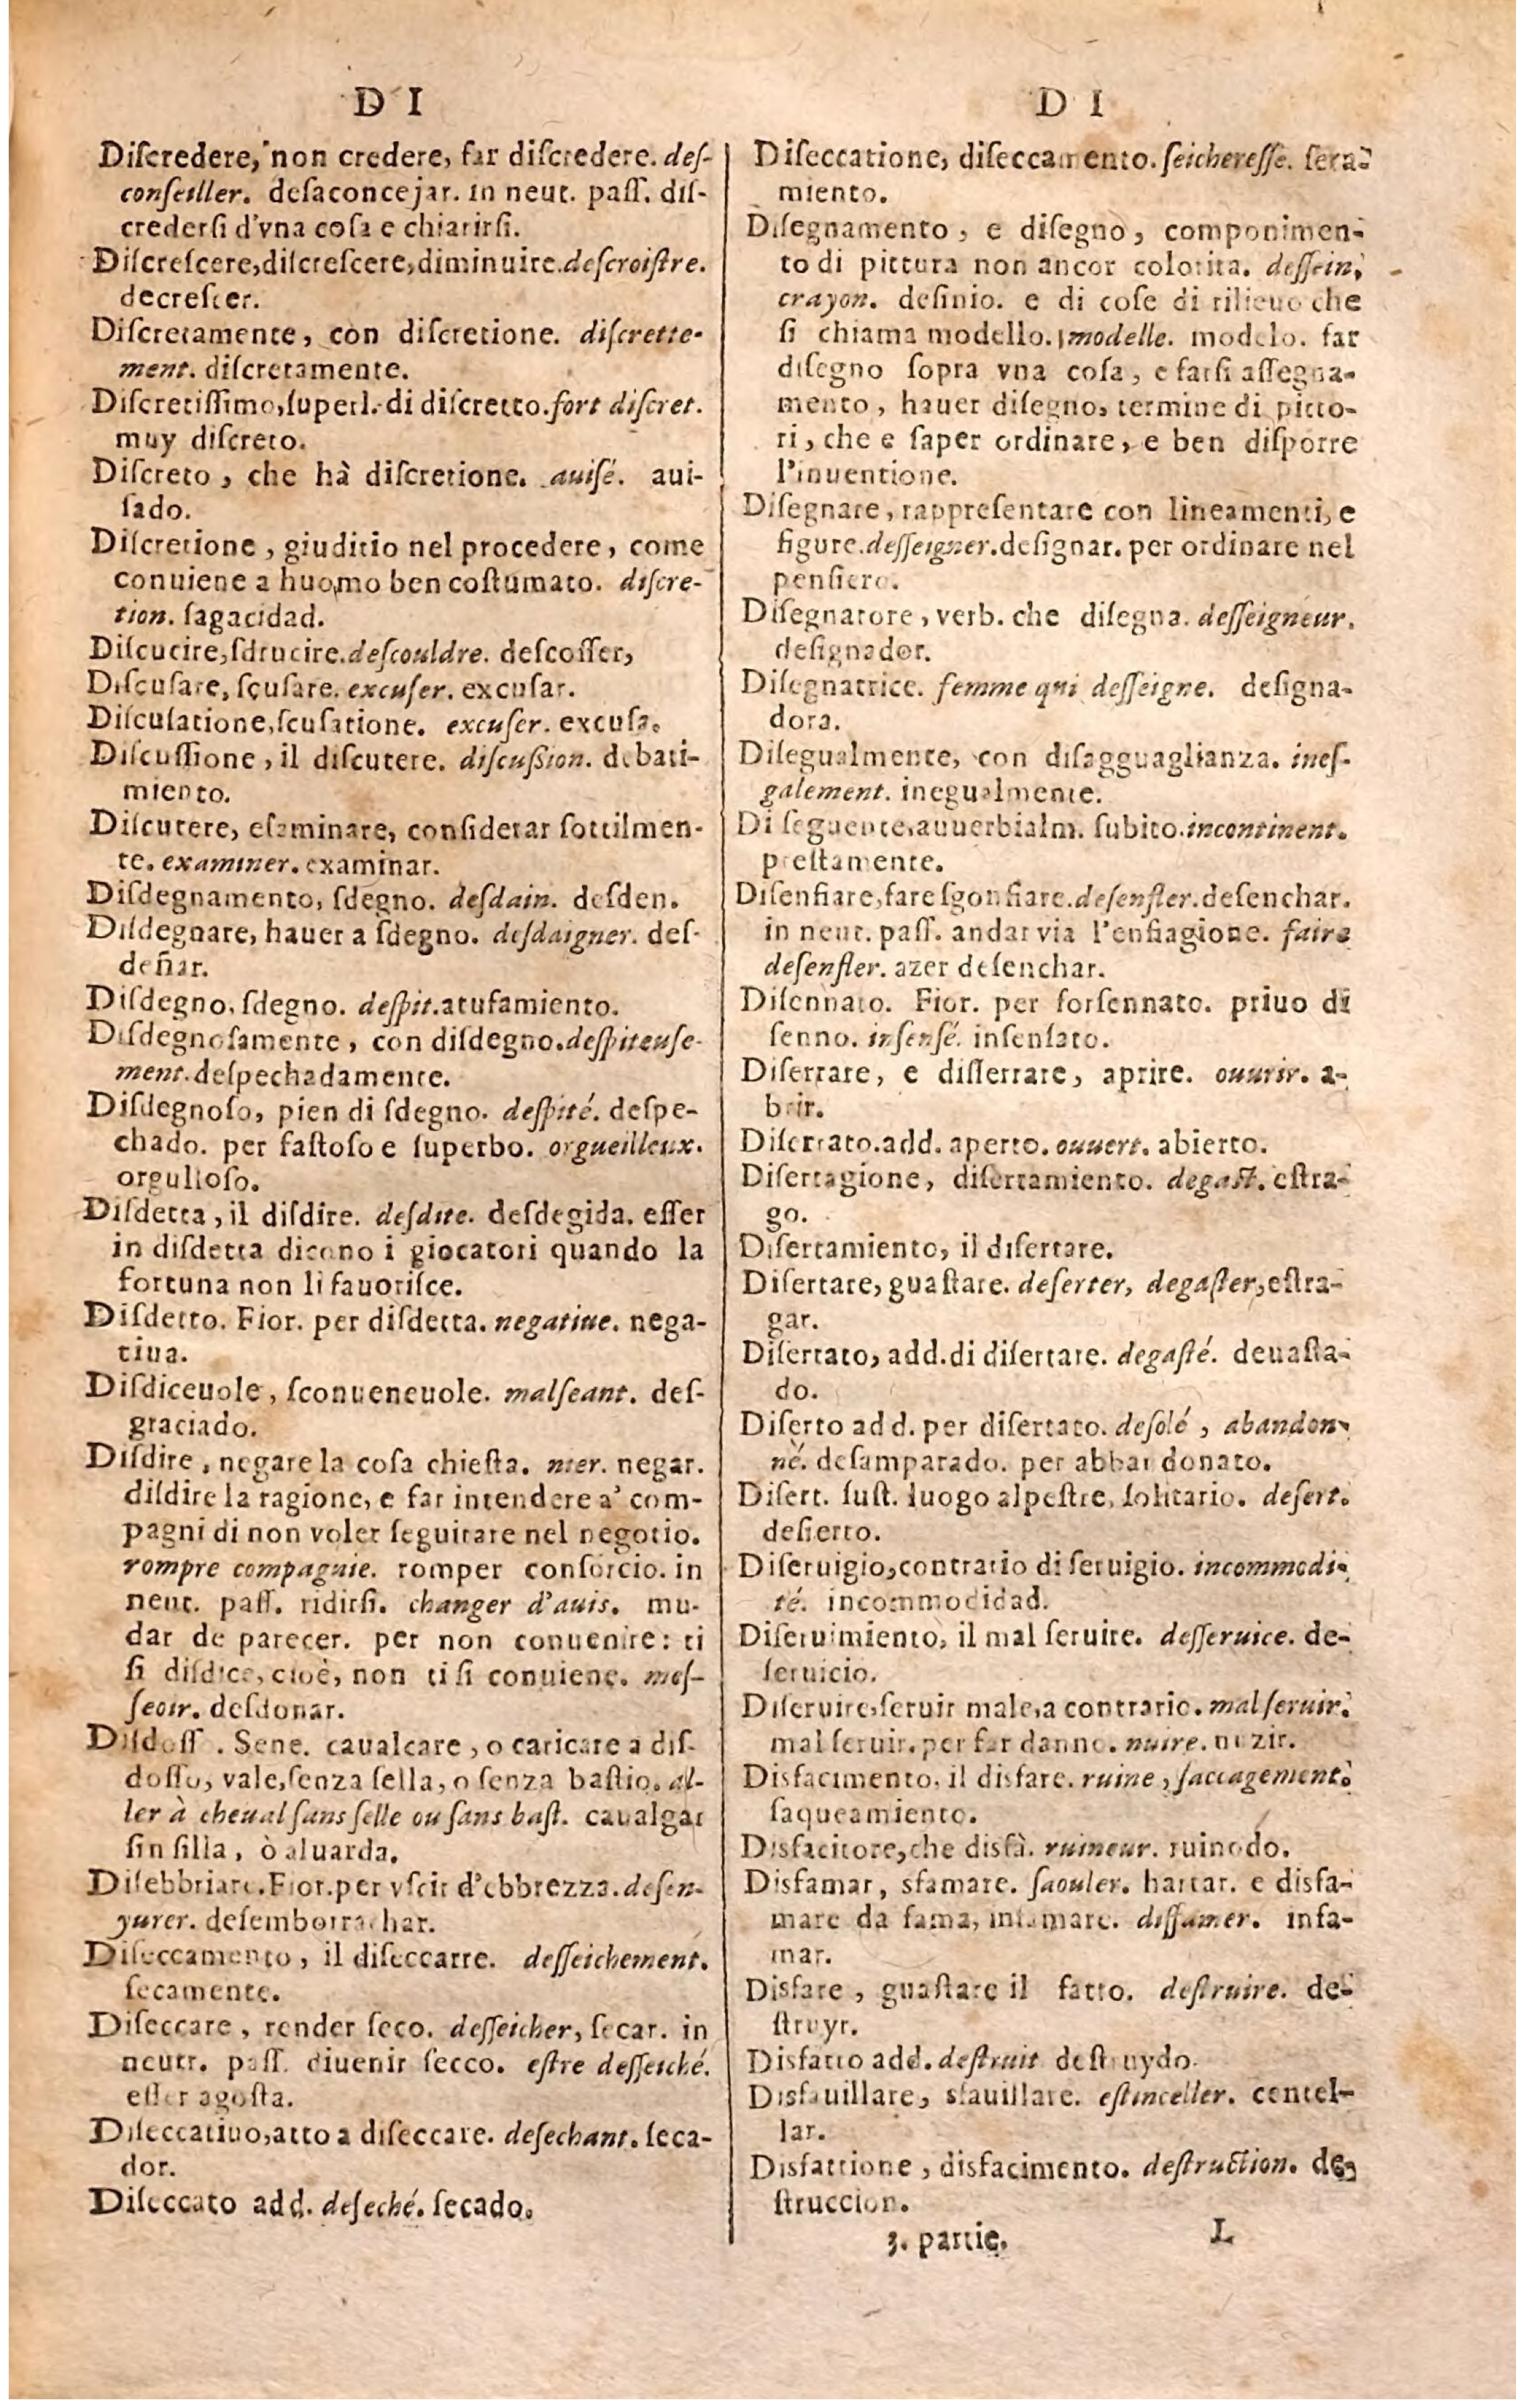 D I
Diſcredere, non credere, far diſcredere. deſ-
conſeiller. deſaconcejar. in neut. paſſ. diſ-
crederſi d'vna coſa e chiarirſi.
Diſcreſcere, diſcreſcere, diminuire. deſcroiſtre.
decreſcer.
Diſcretamente, con diſcretione. diſcrette-
ment. diſcretamente.
Diſcretiſſimo, ſuperl. di diſcretto. fort diſcret.
muy diſcreto.
Diſcreto, che hà diſcretione. auiſé. aui-
ſado.
Diſcretione, giuditio nel procedere, come
conuiene a huomo ben coſtumato. diſcre-
tion. ſagacidad.
Diſcucire, ſdrucire. deſcouldre. deſcoſſer,
Diſcuſare, ſcuſare. excuſer. excuſar.
Diſcuſatione, ſcuſatione. excuſer. excuſa.
Diſcuſſione, il diſcutere. diſcuſsion. debati-
miento.
Diſcutere, eſaminare, conſiderar ſottilmen-
te. examiner. examinar.
Diſdegnamento, ſdegno. deſdain. deſden.
Diſdegnare, hauer a ſdegno. deſdaigner. deſ-
deñar.
Diſdegno, ſdegno. deſpit. atufamiento.
Diſdegnoſamente, con diſdegno. deſpiteuſe-
ment. deſpechadamente.
Diſdegnoſo, pien di ſdegno. deſpité. deſpe-
chado. per faſtoſo e ſuperbo. orgueilleux.
orgulloſo.
Diſdetta, il diſdire. deſdite. deſdegida. eſſer
in diſdetta dicono i giocatori quando la
fortuna non li fauoriſce.
Diſdetto. Fior. per diſdetta. negatiue. nega-
tiua.
Diſdiceuole, ſconueneuole. malſeant. deſ-
graciado.
Diſdire, negare la coſa chieſta. nier. negar.
diſdire la ragione, e far intendere a' com-
pagni di non voler ſeguitare nel negotio.
rompre compagnie. romper conſorcio. in
neut. paſſ. ridirſi. changer d'auis. mu-
dar de parecer. per non conuenire: ti
ſi diſdice, cioè, non ti ſi conuiene. meſ-
ſeoir. deſdonar.
Diſdoſſ . Sene. caualcare, o caricare a diſ-
doſſo, vale, ſenza ſella, o ſenza baſtio. al-
ler à cheual ſans ſelle ou ſans baſt. caualgar
ſin ſilla, ò aluarda.
Diſebbriare. Fior. per vſcir d'ebbrezza. deſen-
yurer. deſemborrachar.
Diſeccamento, il diſeccarre. deſſeichement.
ſecamente.
Diſeccare, render ſeco. deſſeicher, ſecar. in
neutr. paſſ. diuenir ſecco. eſtre deſſeiché.
eſſer agoſta.
Diſeccatiuo, atto a diſeccare. deſechant. ſeca-
dor.
Diſeccato add. deſeché. ſecado.
D I
Diſeccatione, diſeccamento. ſeichereſſe. ſera-
miento.
Diſegnamento, e diſegno, componimen-
to di pittura non ancor colorita. deſſein,
crayon. deſinio. e di coſe di rilieuo che
ſi chiama modello. modelle. modelo. far
diſegno ſopra vna coſa, e farſi aſſegna-
mento, hauer diſegno, termine di pitto-
ri, che e ſaper ordinare, e ben diſporre
l'inuentione.
Diſegnare, rappreſentare con lineamenti, e
figure. deſſeigner. deſignar. per ordinare nel
penſiero.
Diſegnatore, verb. che diſegna. deſſeigneur.
deſignador.
Diſegnatrice. femme qui deſſeigne. deſigna-
dora.
Diſegualmente, con diſagguaglianza. ineſ-
galement. inegualmente.
Di ſeguente, auuerbialm. ſubito. incontinent.
preſtamente.
Diſenfiare, fare ſgonfiare. deſenfler. deſenchar.
in neut. paſſ. andar via l'enfiagione. faire
deſenfler. azer deſenchar.
Diſennato. Fior. per forſennato. priuo di
ſenno. inſenſé. inſenſato.
Diſerrare, e diſſerrare, aprire. ouurir. a-
brir.
Diſerrato. add. aperto. ouuert. abierto.
Diſertagione, diſertamiento. degaſt. eſtra-
go.
Diſertamiento, il diſertare.
Diſertare, guaſtare. deſerter, degaſter, eſtra-
gar.
Diſertato, add. di diſertare. degaſté. deuaſta-
do.
Diſerto add. per diſertato. deſolé, abandon-
né. deſamparado. per abbandonato.
Diſert. ſuſt. luogo alpeſtre, ſolitario. deſert.
deſierto.
Diſeruigio, contrario di ſeruigio. incommodi-
té. incommodidad.
Diſeruimiento, il mal ſeruire. deſſeruice. de-
ſeruicio.
Diſeruire, ſeruir male, a contrario. mal ſeruir.
mal ſeruir. per far danno. nuire. nuzir.
Disfacimento, il disfare. ruine, ſaccagement.
ſaqueamiento.
Disfacitore, che disfà. ruineur. ruinodo.
Disfamar, sfamare. ſaouler. hartar. e disfa-
mare da fama, infamare. diffamer. infa-
mar.
Disfare, guaſtare il fatto. deſtruire. de-
ſtruyr.
Disfatto add. deſtruit deſtruydo.
Disfauillare, sfauillare. eſtinceller. centel-
lar.
Disfattione, disfacimento. deſtruction. de-
ſtruccion.
3. partie. L